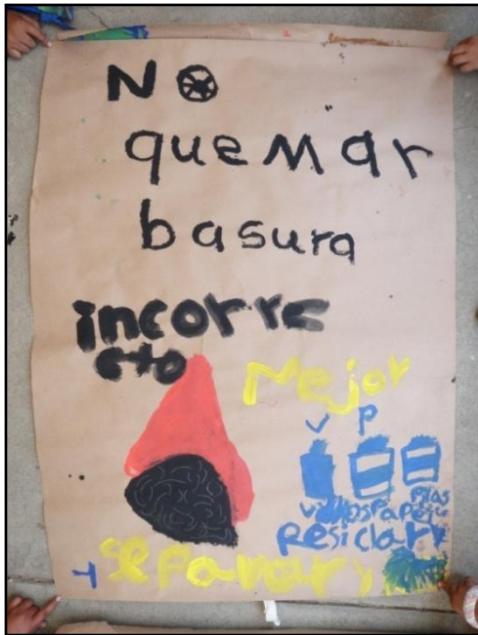 No
quemar
basura
incorre
cto
Mejor
V P
vidrios papel plas
Resiclar y
separar y